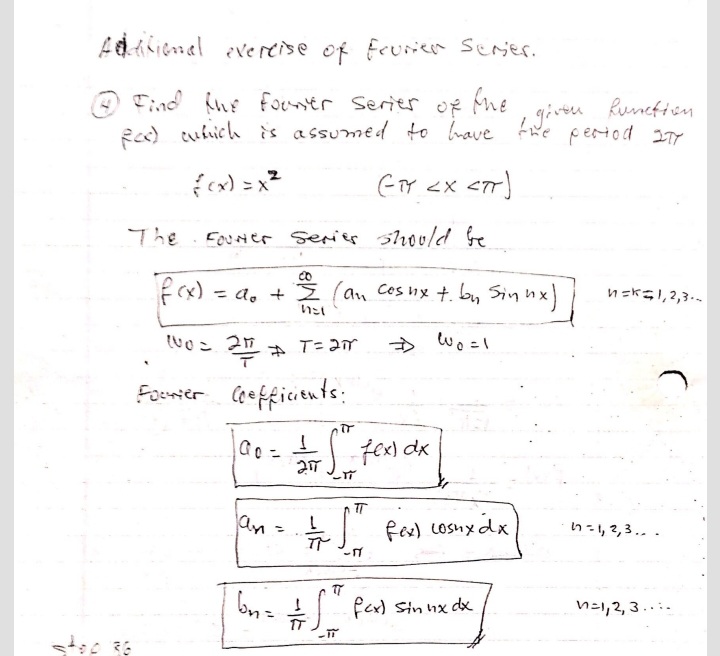 Additional exercise of Fourier Series.
④ Find the Fourier series of the given function
f(x) which is assumed to have the period 2π
f(x) = x² (-π < x < π)
The Fourier Series should be
f(x) = a₀ + ∑_{n=1}^{∞} (an cos nx + bn Sin nx) n=k=1,2,3...
W₀ = 2π/T ⇒ T=2π ⇒ W₀=1
Fourier Coefficients:
a₀ = 1/2π ∫_{-π}^{π} f(x) dx
an = 1/π ∫_{-π}^{π} f(x) cosnx dx n=1,2,3...
bn = 1/π ∫_{-π}^{π} f(x) sin nx dx n=1,2,3....
36